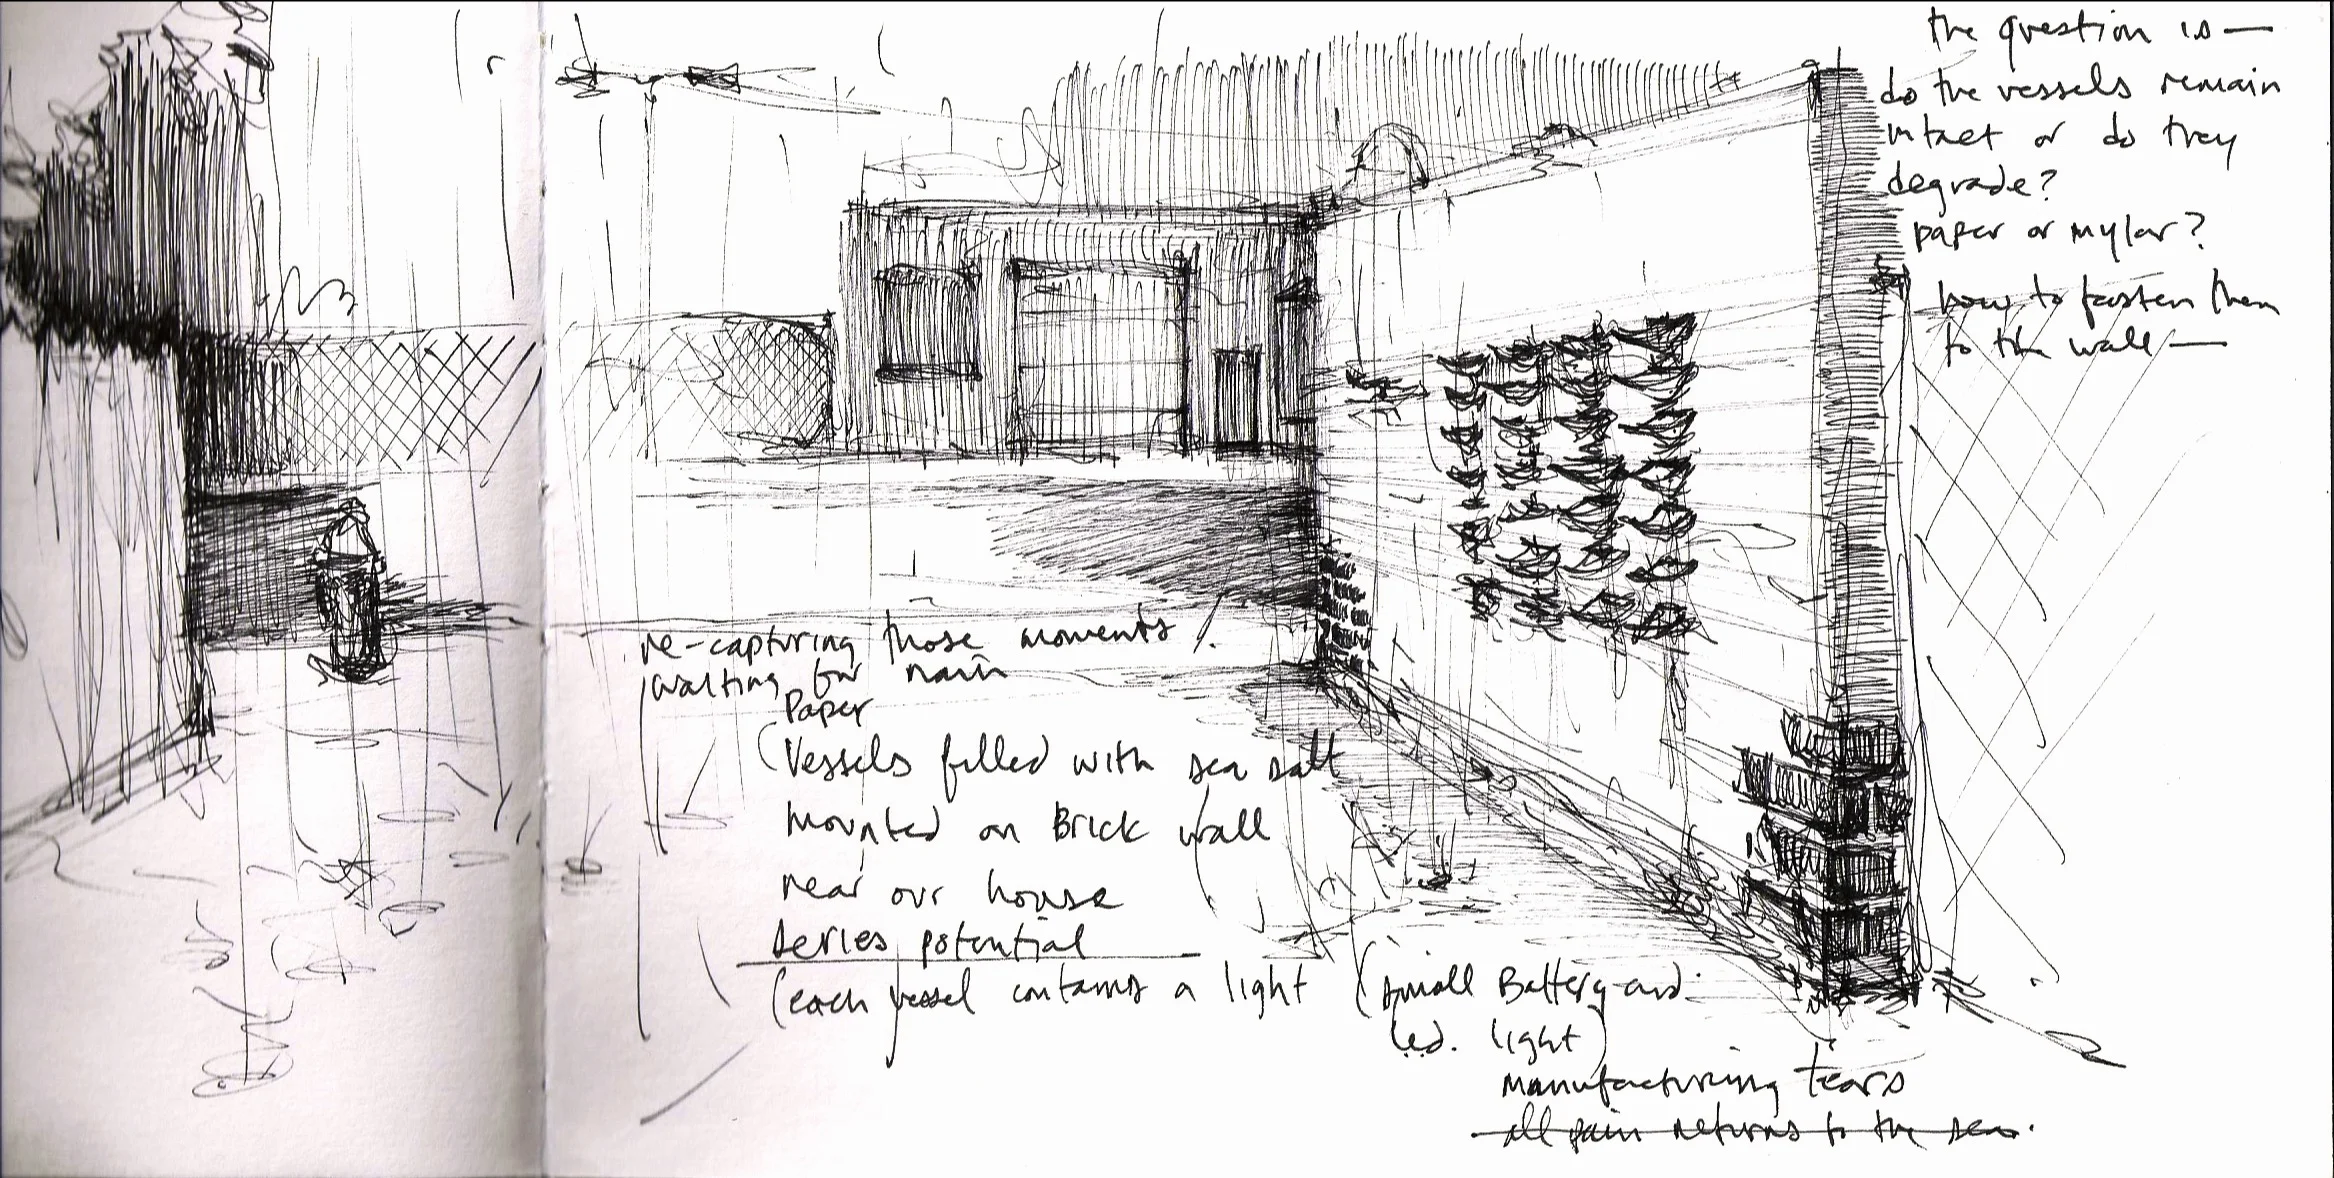 the question is —
do the vessels remain
intact or do they
degrade?
paper or mylar?
how to fasten them
to the wall —
re-capturing those moments /.
waiting for rain
Paper
(Vessels filled with sea salt
mounted on Brick wall
near our house
series potential
(each vessel contains a light (small Battery and.
led. light)
manufacturing tears
all pain returns to the sea.